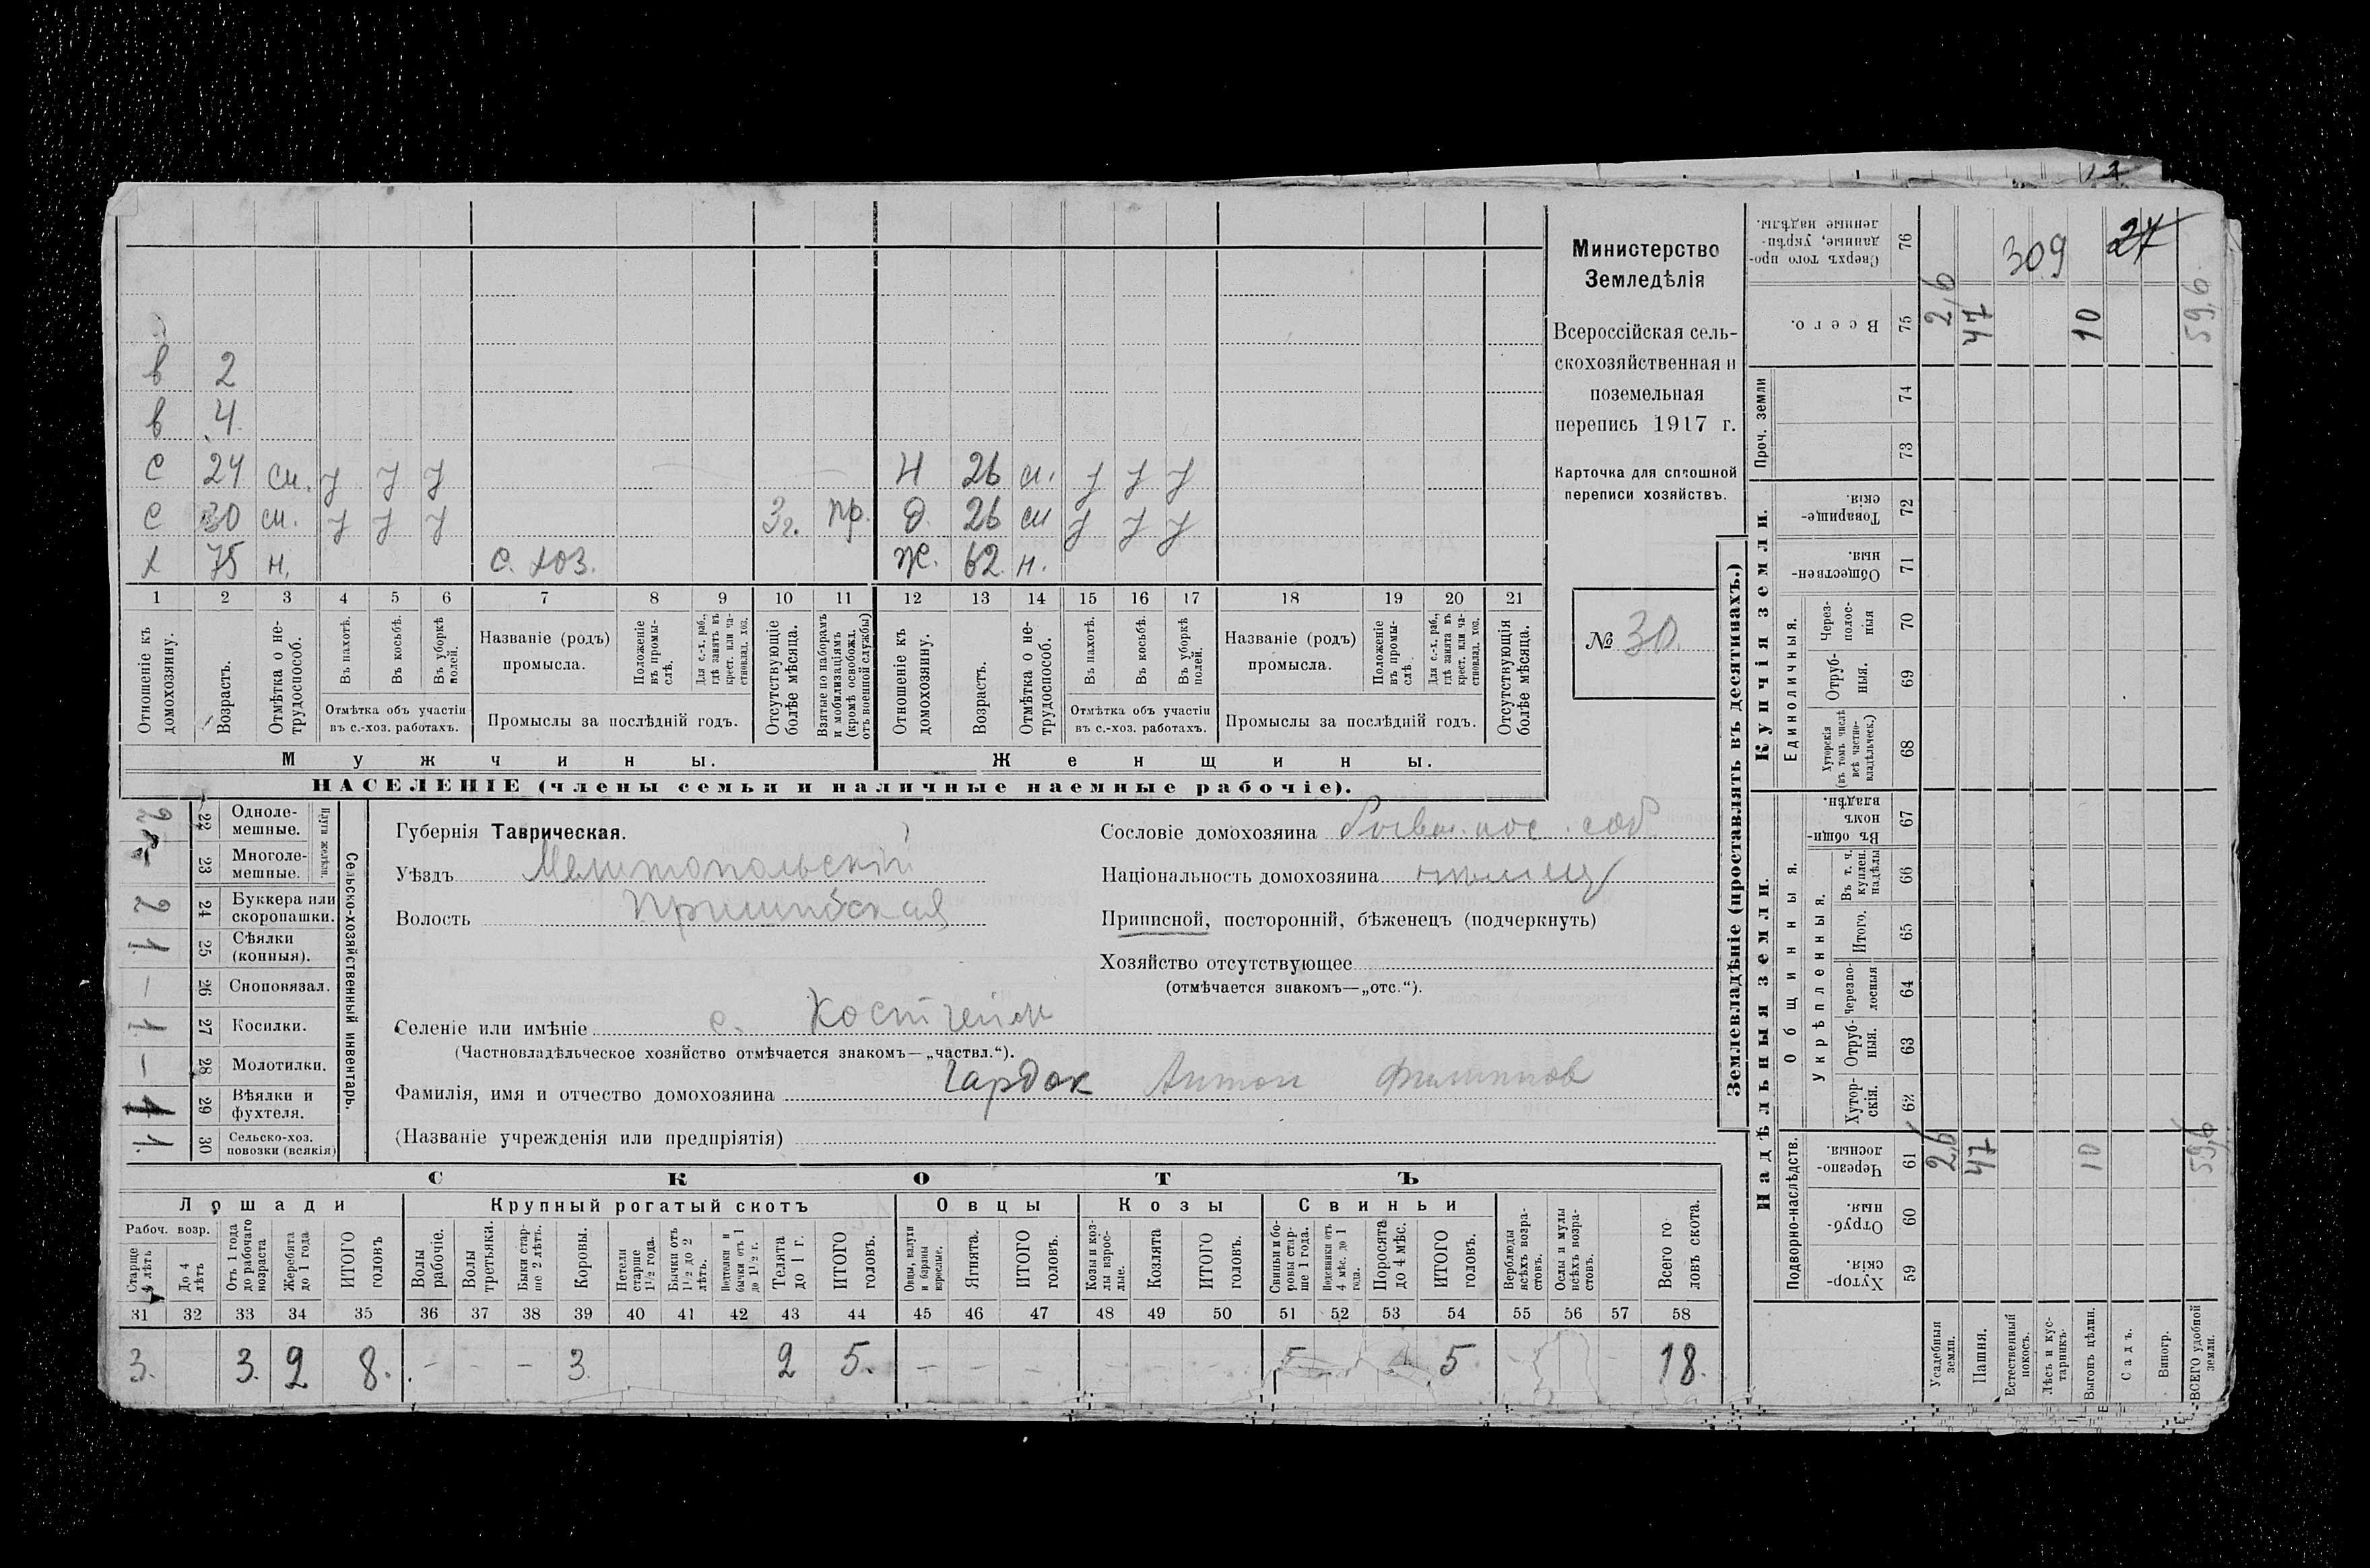 27
309
в 2
в 4
с 24 см. У У У Н 26 см. У У У
с 30 см. У У У 3 г. пр. д. 26 см У У У
х 75 н. с. хоз. Ж. 62 н.
1 2 3 4 5 6 7 8 9 10 11 12 13 14 15 16 17 18 19 20 21
Отношеніе къ домохозяину.
Возрастъ.
Отмѣтка о нетрудоспособ.
Въ пахотѣ.
Въ косьбѣ.
Въ уборкѣ полей.
Отмѣтка объ участіи
въ с.-хоз. работахъ.
Названіе (родъ)
промысла.
Положеніе въ промыслѣ.
Для с.-х. раб., гдѣ занятъ въ крест. или частновлад. хоз.
Промыслы за послѣдній годъ.
Отсутствующіе болѣе мѣсяца.
Взятые по наборамъ и мобилизаціямъ (кромѣ освобожд. отъ военной службы)
Отношеніе къ домохозяину.
Возрастъ.
Отмѣтка о нетрудоспособ.
Въ пахотѣ.
Въ косьбѣ.
Въ уборкѣ полей.
Отмѣтка объ участіи
въ с.-хоз. работахъ.
Названіе (родъ)
промысла.
Положеніе въ промыслѣ
Для с.-х. раб., гдѣ занята въ крест. или частновлад. хоз.
Промыслы за послѣдній годъ.
Отсутствующія болѣе мѣсяца.
Мужчины.
Женщины.
НАСЕЛЕНІЕ (члены семьи и наличные наемные рабочіе).
Министерство
Земледѣлія
Всероссійская сель-
скохозяйственная и
поземельная
перепись 1917 г.
Карточка для сплошной
переписи хозяйствъ.
№ 30.
Сельско-хозяйственный инвентарь.
Плуги желѣзн.
22 Одноле-
мешные.
23 Многоле-
мешные.
2 24 Буккера или
скоропашки.
1 25 Сѣялки
(конныя).
– 26 Сноповязал.
1 27 Косилки.
– 28 Молотилки.
1 29 Вѣялки и
фухтеля.
1. 30 Сельско-хоз.
повозки (всякія)
Губернія Таврическая.
Уѣздъ Мелитопольскій
Волость Пришибская
Сословіе домохозяина пос. соб.
Національность домохозяина нѣмец
Приписной, посторонній, бѣженецъ (подчеркнуть)
Хозяйство отсутствующее
(отмѣчается знакомъ—„отс.“).
Селеніе или имѣніе с. Костгейм
(Частновладѣльческое хозяйство отмѣчается знакомъ—„частвл.“).
Фамилія, имя и отчество домохозяина Гардок Антон Филиппов
(Названіе учрежденія или предпріятія)
СКОТЪ
Лошади
Крупный рогатый скотъ
Овцы
Козы
Свиньи
Рабоч. возр.
Старше 4 лѣтъ
До 4 лѣтъ
Отъ 1 года до рабочаго возраста
Жеребята до 1 года
ИТОГО головъ
Волы рабочіе.
Волы третьяки.
Быки старше 2 лѣтъ.
Коровы.
Нетели старше 1½ года.
Бычки отъ 1½ до 2 лѣтъ.
Подтелки и бычки отъ 1 до 1½ г.
Телята до 1 г.
ИТОГО головъ.
Овцы, валухи и бараны взрослые.
Ягнята.
ИТОГО головъ.
Козы и козлы взрослые.
Козлята
ИТОГО головъ.
Свиньи и боровы старше 1 года.
Подсвинки отъ 4 мѣс. до 1 года.
Поросята до 4 мѣс.
ИТОГО головъ.
Верблюды всѣхъ возрастовъ.
Ослы и мулы всѣхъ возрастовъ.
Всего головъ скота.
31 32 33 34 35 36 37 38 39 40 41 42 43 44 45 46 47 48 49 50 51 52 53 54 55 56 57 58
3. 3. 2 8. - - - 3. 2 5. - - - 5 5 18.
Землевладѣніе (проставлять въ десятинахъ.)
Купчія земли.
Надѣльныя земли.
Сверхъ того проданные, укрѣпленные надѣлы. 76
Всего. 75 2,6 47 10 59,6
Проч. земли
74
73
Товарищескія. 72
Общественныя. 71
Единоличныя.
Черезполосныя 70
Отрубныя. 69
Хуторскія (въ томъ числѣ всѣ частновладѣльческ.) 68
Общинныя.
Въ общинномъ владѣн. 67
Укрѣпленныя.
Въ т. ч. куплен. надѣлы 66
Итого. 65
Черезполосныя 64
Отрубныя. 63
Хуторскія. 62
Подворно-наслѣдств.
Черезполосныя. 61 2,6 47 10 59,6
Отрубныя. 60
Хуторскія. 59
Усадебныя земли.
Пашня.
Естественный покосъ.
Лѣсъ и кустарникъ.
Выгонъ цѣлин.
Садъ.
Виногр.
ВСЕГО удобной земли.